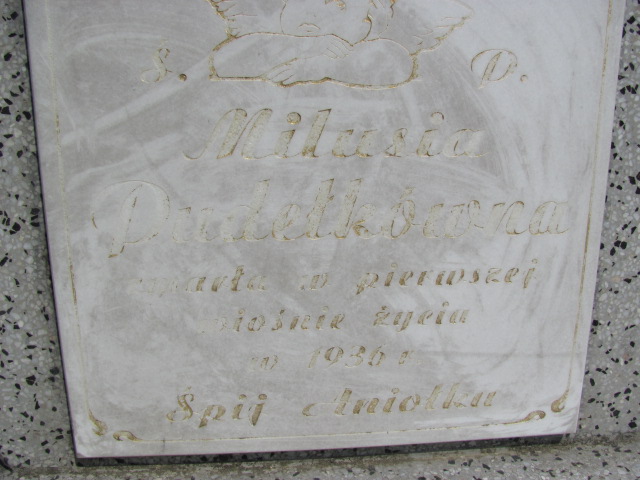 Ś. P.
Milusia
Dudełkówna
zmarła w pierwszej
wiośnie życia
w 1936 r
Śpij Aniołku